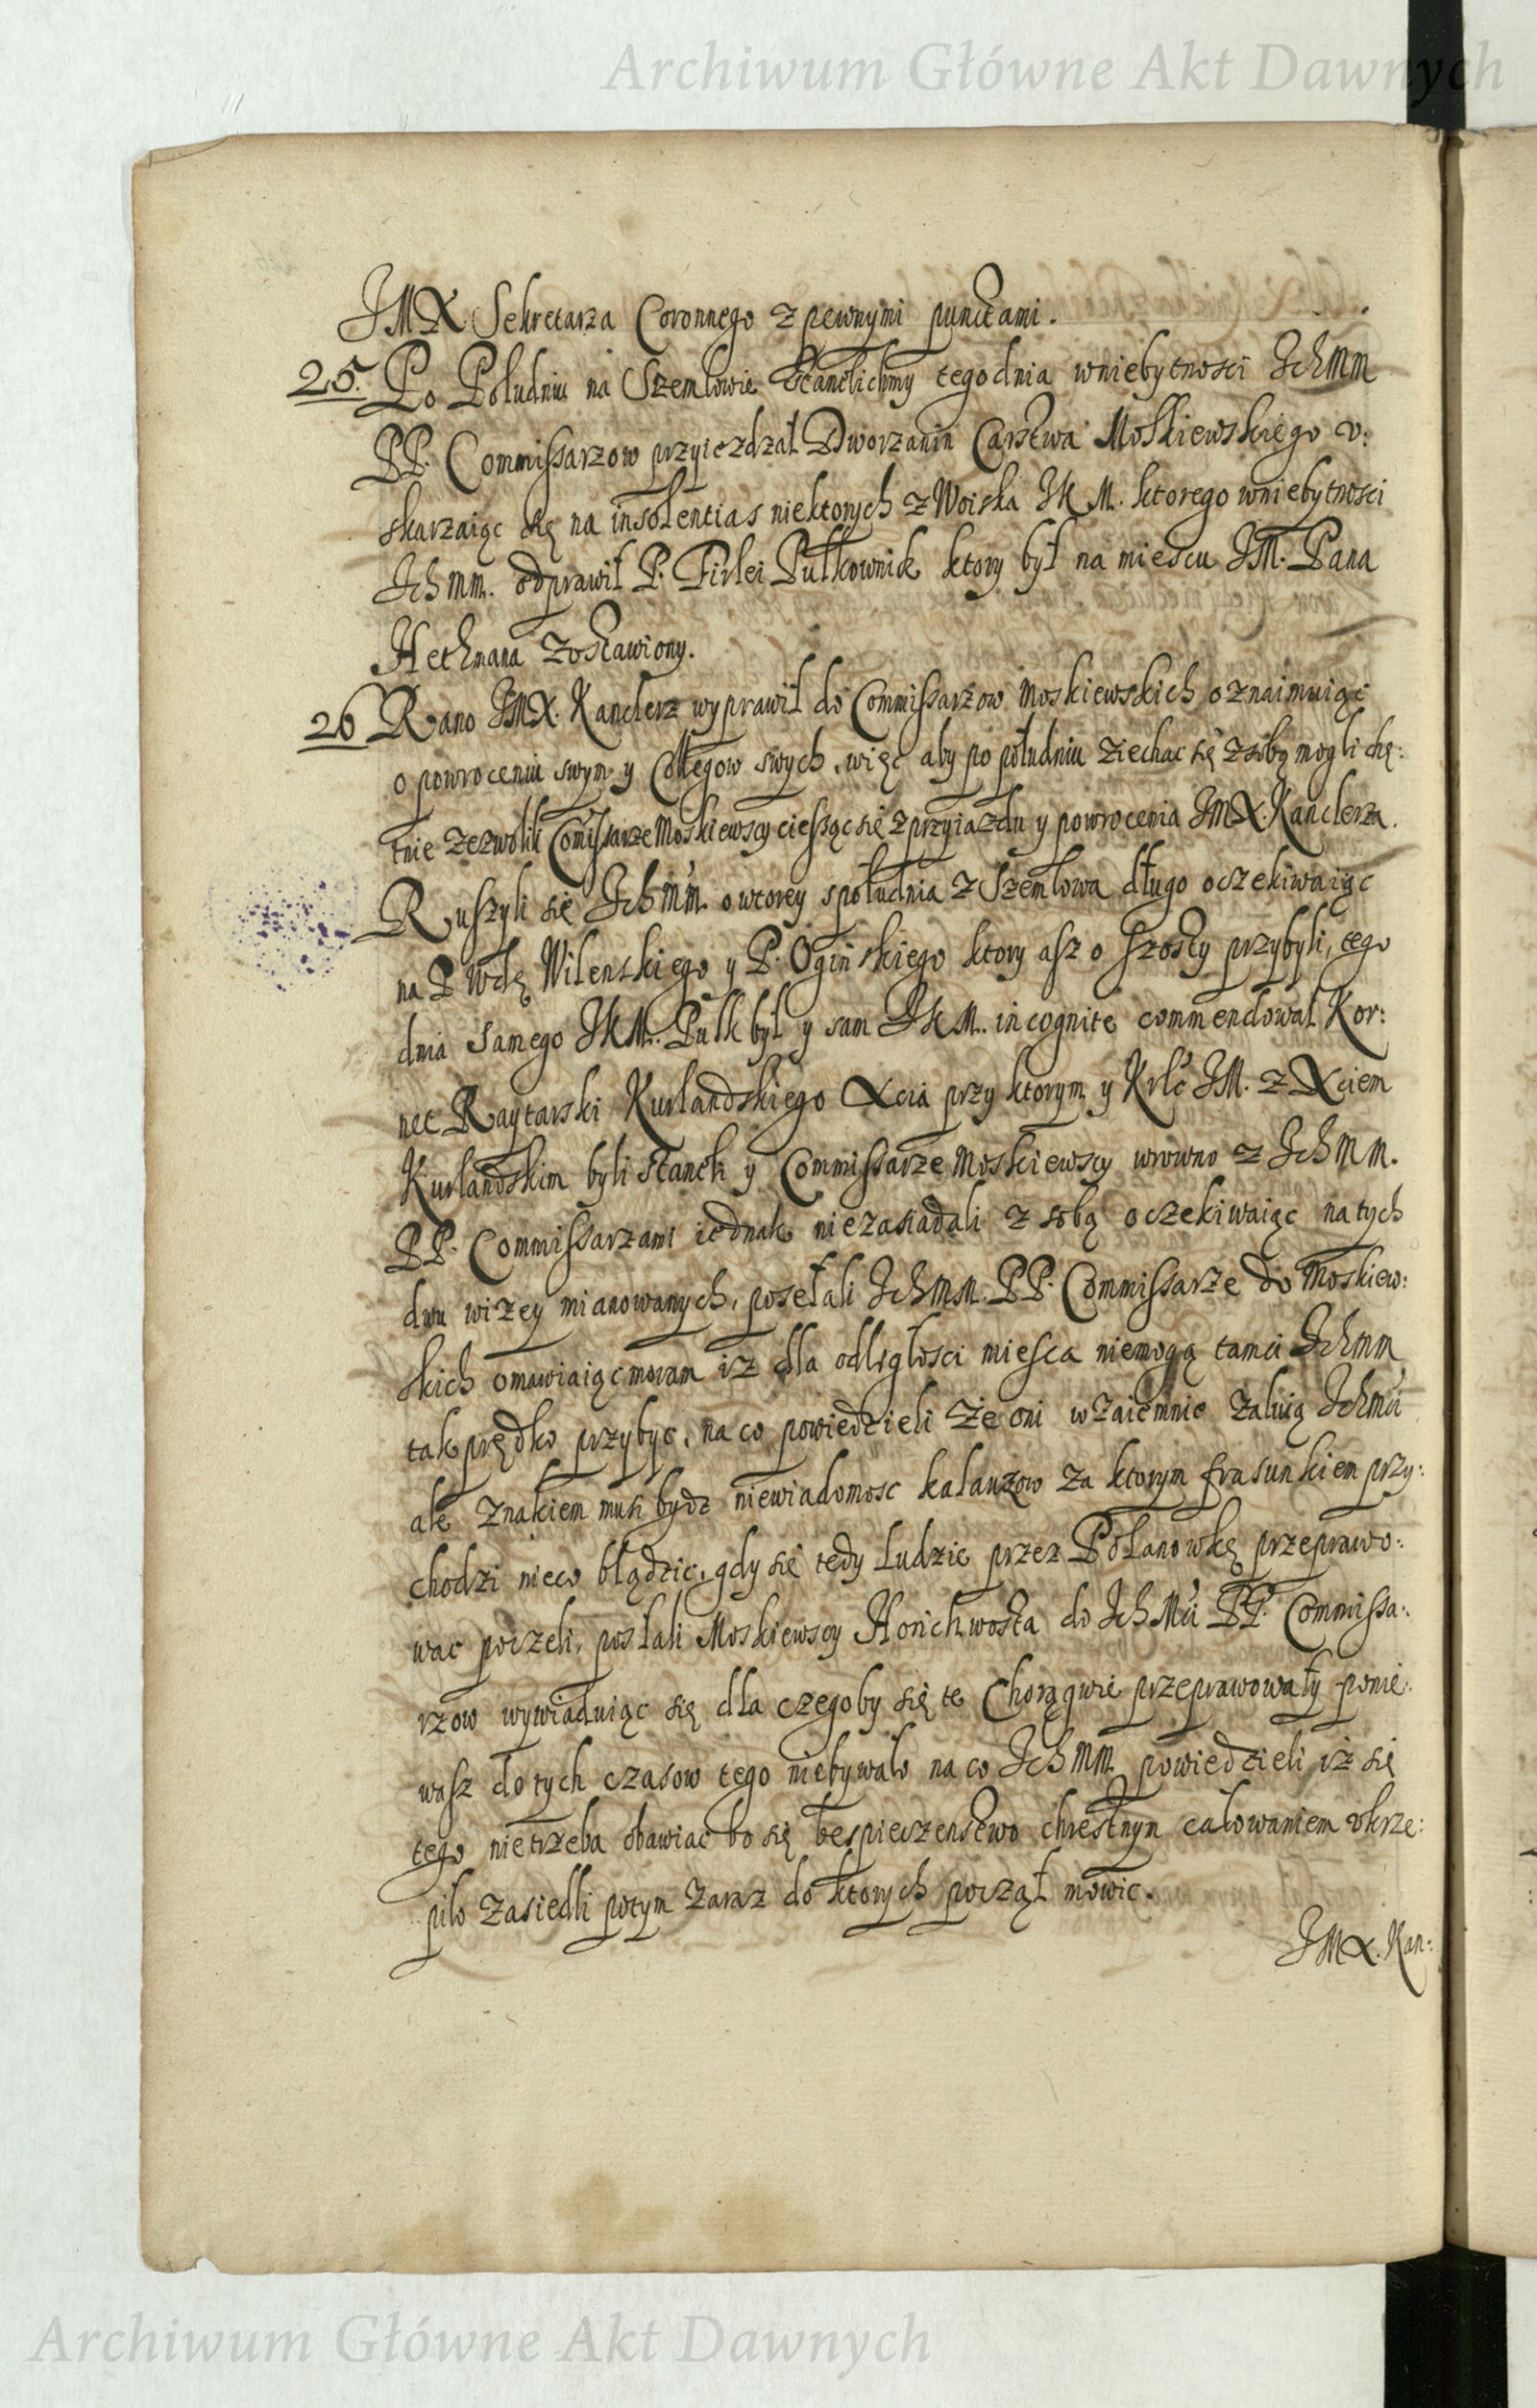 Archiwum Główne Akt Dawnych
JMX Sekretarza Coronnego z pewnymi punctami.
25. Po Południu na Szemlowie stanelichmy tego dnia wniebytnosci Ichmm
PP. Commissarzow przyiezdzał Dworzanin Carstwa Moskiewskiego v:
skarzaiąc się na insolentias niektorych z Woiska JKM. ktorego wniebytnosci
Ichmm. odprawił P. Firlei Pułkownik ktory był na miescu JM. Pana
Hethmana zostawiony.
26 Rano JMX. Kanclerz wyprawił do Commissarzow Moskiewskich oznaimuiąc
o powroceniu swym y Collegow swych, więc aby po południu ziechac się z sobą mogli chę:
tnie zezwolili Comissarze Moskiewscy ciesząc się z przyiazdu y powrocenia JMX. Kanclerza.
Ruszyli się Ichmm. o wtorey społudnia z Szemlowa długo oczekiwaiąc
na P Wdę Wilenskiego y P. Oginskiego ktory asz o szosty przybyli, tego
dnia samego JKM. Pulk był y sam JKM. incognite commendował Kor:
net Raytarski Kurlandskiego Xcia przy ktorym y Krlc JM. z Xciem
Kurlandskim byli stanęli y Commissarze Moskiewscy wrowno z Ichmm.
PP. Commissarzami iednak niezasiadali z sobą oczekiwaiąc na tych
dwu wizey mianowanych, posełali Ichmm. PP. Commissarze do Moskiew:
skich omawiaiąc moram iz dla odległosci miesca niemogą tamci Ichmm
tak prędko przybyc, na co powiedzieli że oni wzaiemnie żałuią Ichmci
ale znakiem musi bydz niewiadomosc kalauzow za ktorym frasunkiem przy:
chodzi nieco błądzic, gdy się tedy Ludzie przez Polanowkę przeprawo:
wac poczeli, posłali Moskiewscy Horichwosta do Ich Mci PP. Commissa:
rzow wywiaduiąc się dla czegoby się te Chorągwie przeprawowały ponie:
wasz do tych czasow tego niebywało na co Ichmm powiedzieli iż się
tego nietrzeba obawiac bo się bespieczenstwo chrestnym całowaniem vkrze:
piło zasiedli potym zaraz do ktorych począł mowic.
JMX. Kan:
Archiwum Główne Akt Dawnych